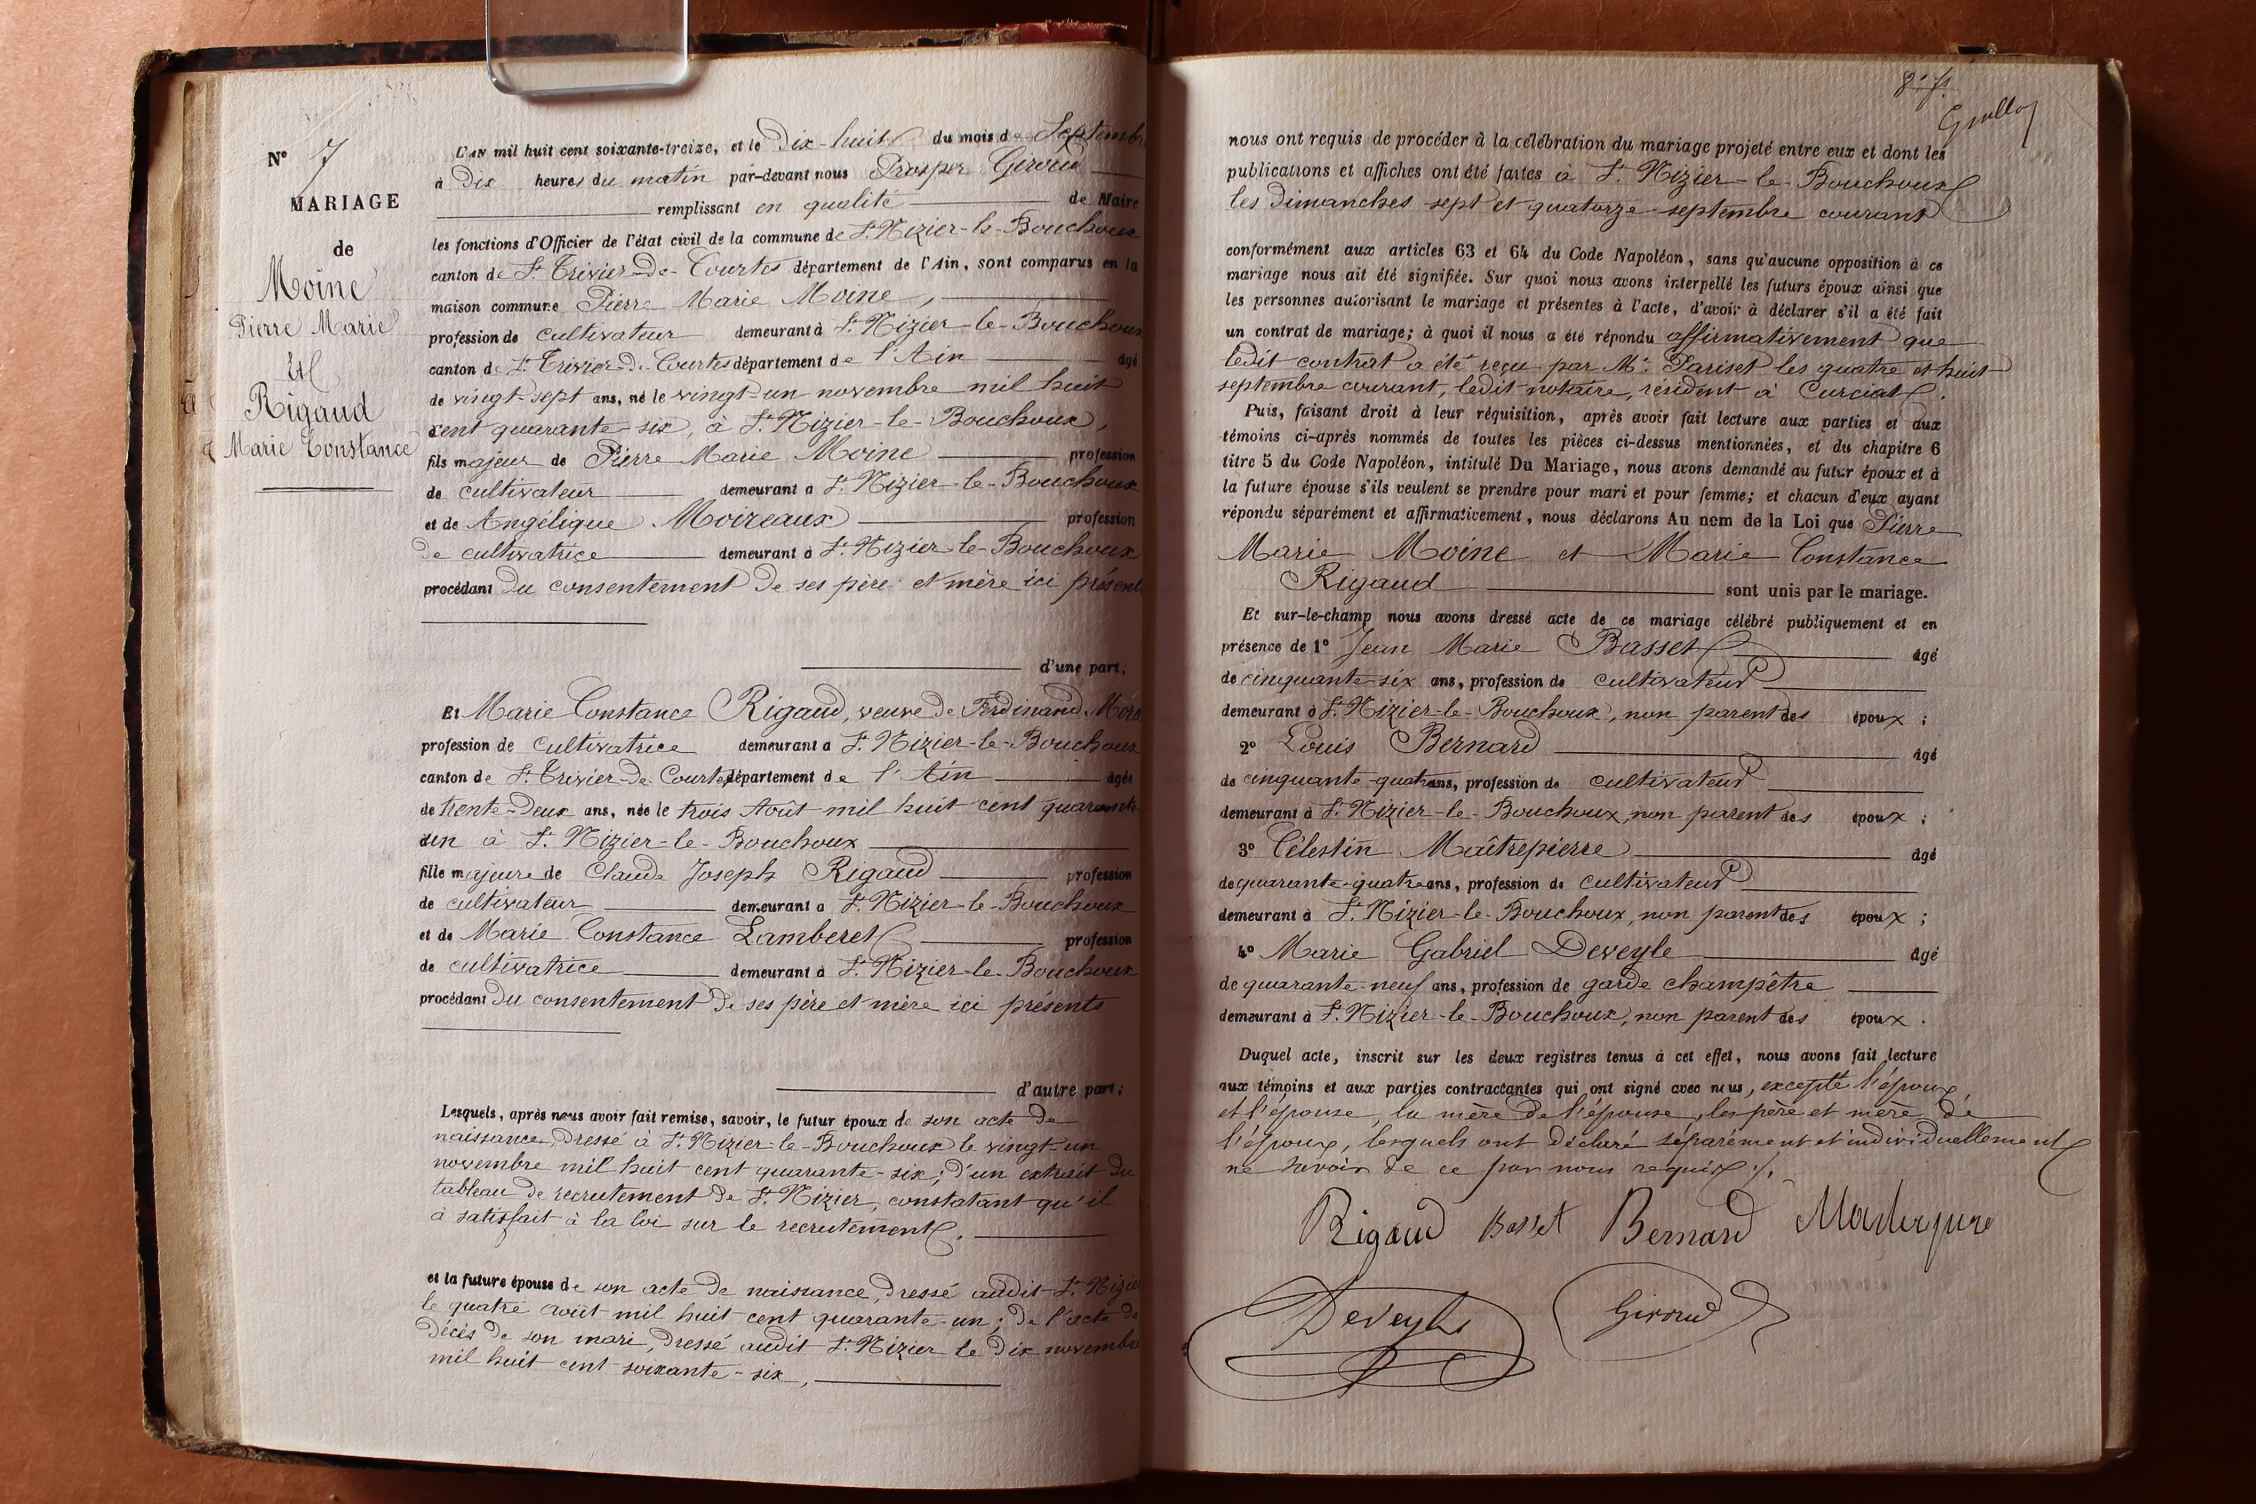 N° 7
MARIAGE
de
Moine
Pierre Marie
et
Rigaud
Marie Constance
L'an mil huit cent soixante-treize, et le Dix-huit du mois de Septembre
à Dix heures du matin par-devant nous Prosper Giroud
remplissant en qualité de Maire
les fonctions d'Officier de l'état civil de la commune de St. Nizier-le-Bouchoux
canton de St. Trivier-de-Courtes département de l'Ain, sont comparus en la
maison commune Pierre Marie Moine,
profession de cultivateur demeurant à St. Nizier-le-Bouchoux
canton de St. Trivier-de-Courtes département de l'Ain âgé
de vingt-sept ans, né le vingt-un novembre mil huit
cent quarante-six, à St. Nizier-le-Bouchoux,
fils majeur de Pierre Marie Moine profession
de cultivateur demeurant à St. Nizier-le-Bouchoux
et de Angélique Moireaux profession
de cultivatrice demeurant à St. Nizier-le-Bouchoux
procédant du consentement de ses père et mère ici présents
d'une part;
Et Marie Constance Rigaud, veuve de Ferdinand
profession de cultivatrice demeurant à St. Nizier-le-Bouchoux
canton de St. Trivier-de-Courtes département de l'Ain âgée
de trente-deux ans, née le trois Août mil huit cent quarante
un à St. Nizier-le-Bouchoux
fille majeure de Claude Joseph Rigaud profession
de cultivateur demeurant à St. Nizier-le-Bouchoux
et de Marie Constance Lamberet profession
de cultivatrice demeurant à St. Nizier-le-Bouchoux
procédant du consentement de ses père et mère ici présents
d'autre part;
Lesquels, après nous avoir fait remise, savoir, le futur époux de son acte de
naissance, dressé à St. Nizier-le-Bouchoux le vingt-un
novembre mil huit cent quarante-six; d'un extrait du
tableau de recrutement de St. Nizier, constatant qu'il
a satisfait à la loi sur le recrutement.
et la future épouse de son acte de naissance, dressé audit St. Nizier
le quatre août mil huit cent quarante-un; de l'acte de
décès de son mari, dressé audit St. Nizier le dix novembre
mil huit cent soixante-six,
nous ont requis de procéder à la célébration du mariage projeté entre eux et dont les
publications et affiches ont été faites à St. Nizier-le-Bouchoux
les dimanches sept et quatorze septembre courant
conformément aux articles 63 et 64 du Code Napoléon, sans qu'aucune opposition à ce
mariage nous ait été signifiée. Sur quoi nous avons interpellé les futurs époux ainsi que
les personnes autorisant le mariage et présentes à l'acte, d'avoir à déclarer s'il a été fait
un contrat de mariage; à quoi il nous a été répondu affirmativement que
ledit contrat a été reçu par Me. Pariset les quatre et huit
septembre courant, ledit notaire, résident à Curciat.
Puis, faisant droit à leur réquisition, après avoir fait lecture aux parties et aux
témoins ci-après nommés de toutes les pièces ci-dessus mentionnées, et du chapitre 6
titre 5 du Code Napoléon, intitulé Du Mariage, nous avons demandé au futur époux et à
la future épouse s'ils veulent se prendre pour mari et pour femme; et chacun d'eux ayant
répondu séparément et affirmativement, nous déclarons Au nom de la Loi que Pierre
Marie Moine et Marie Constance
Rigaud sont unis par le mariage.
Et sur-le-champ nous avons dressé acte de ce mariage célébré publiquement et en
présence de 1° Jean Marie Basset âgé
de cinquante-six ans, profession de cultivateur
demeurant à St. Nizier-le-Bouchoux, non parent des époux;
2° Louis Bernard âgé
de cinquante-quatre ans, profession de cultivateur
demeurant à St. Nizier-le-Bouchoux, non parent des époux;
3° Célestin Maîtrepierre âgé
de quarante-quatre ans, profession de cultivateur
demeurant à St. Nizier-le-Bouchoux, non parent des époux;
4° Marie Gabriel Deveyle âgé
de quarante-neuf ans, profession de garde champêtre
demeurant à St. Nizier-le-Bouchoux, non parent des époux.
Duquel acte, inscrit sur les deux registres tenus à cet effet, nous avons fait lecture
aux témoins et aux parties contractantes qui ont signé avec nous, excepté l'époux
et l'épouse, la mère de l'épouse, les père et mère de
l'époux, lesquels ont déclaré séparément et individuellement
ne savoir de ce par nous requis.
Rigaud Basset Bernard
Deveyle Giroud